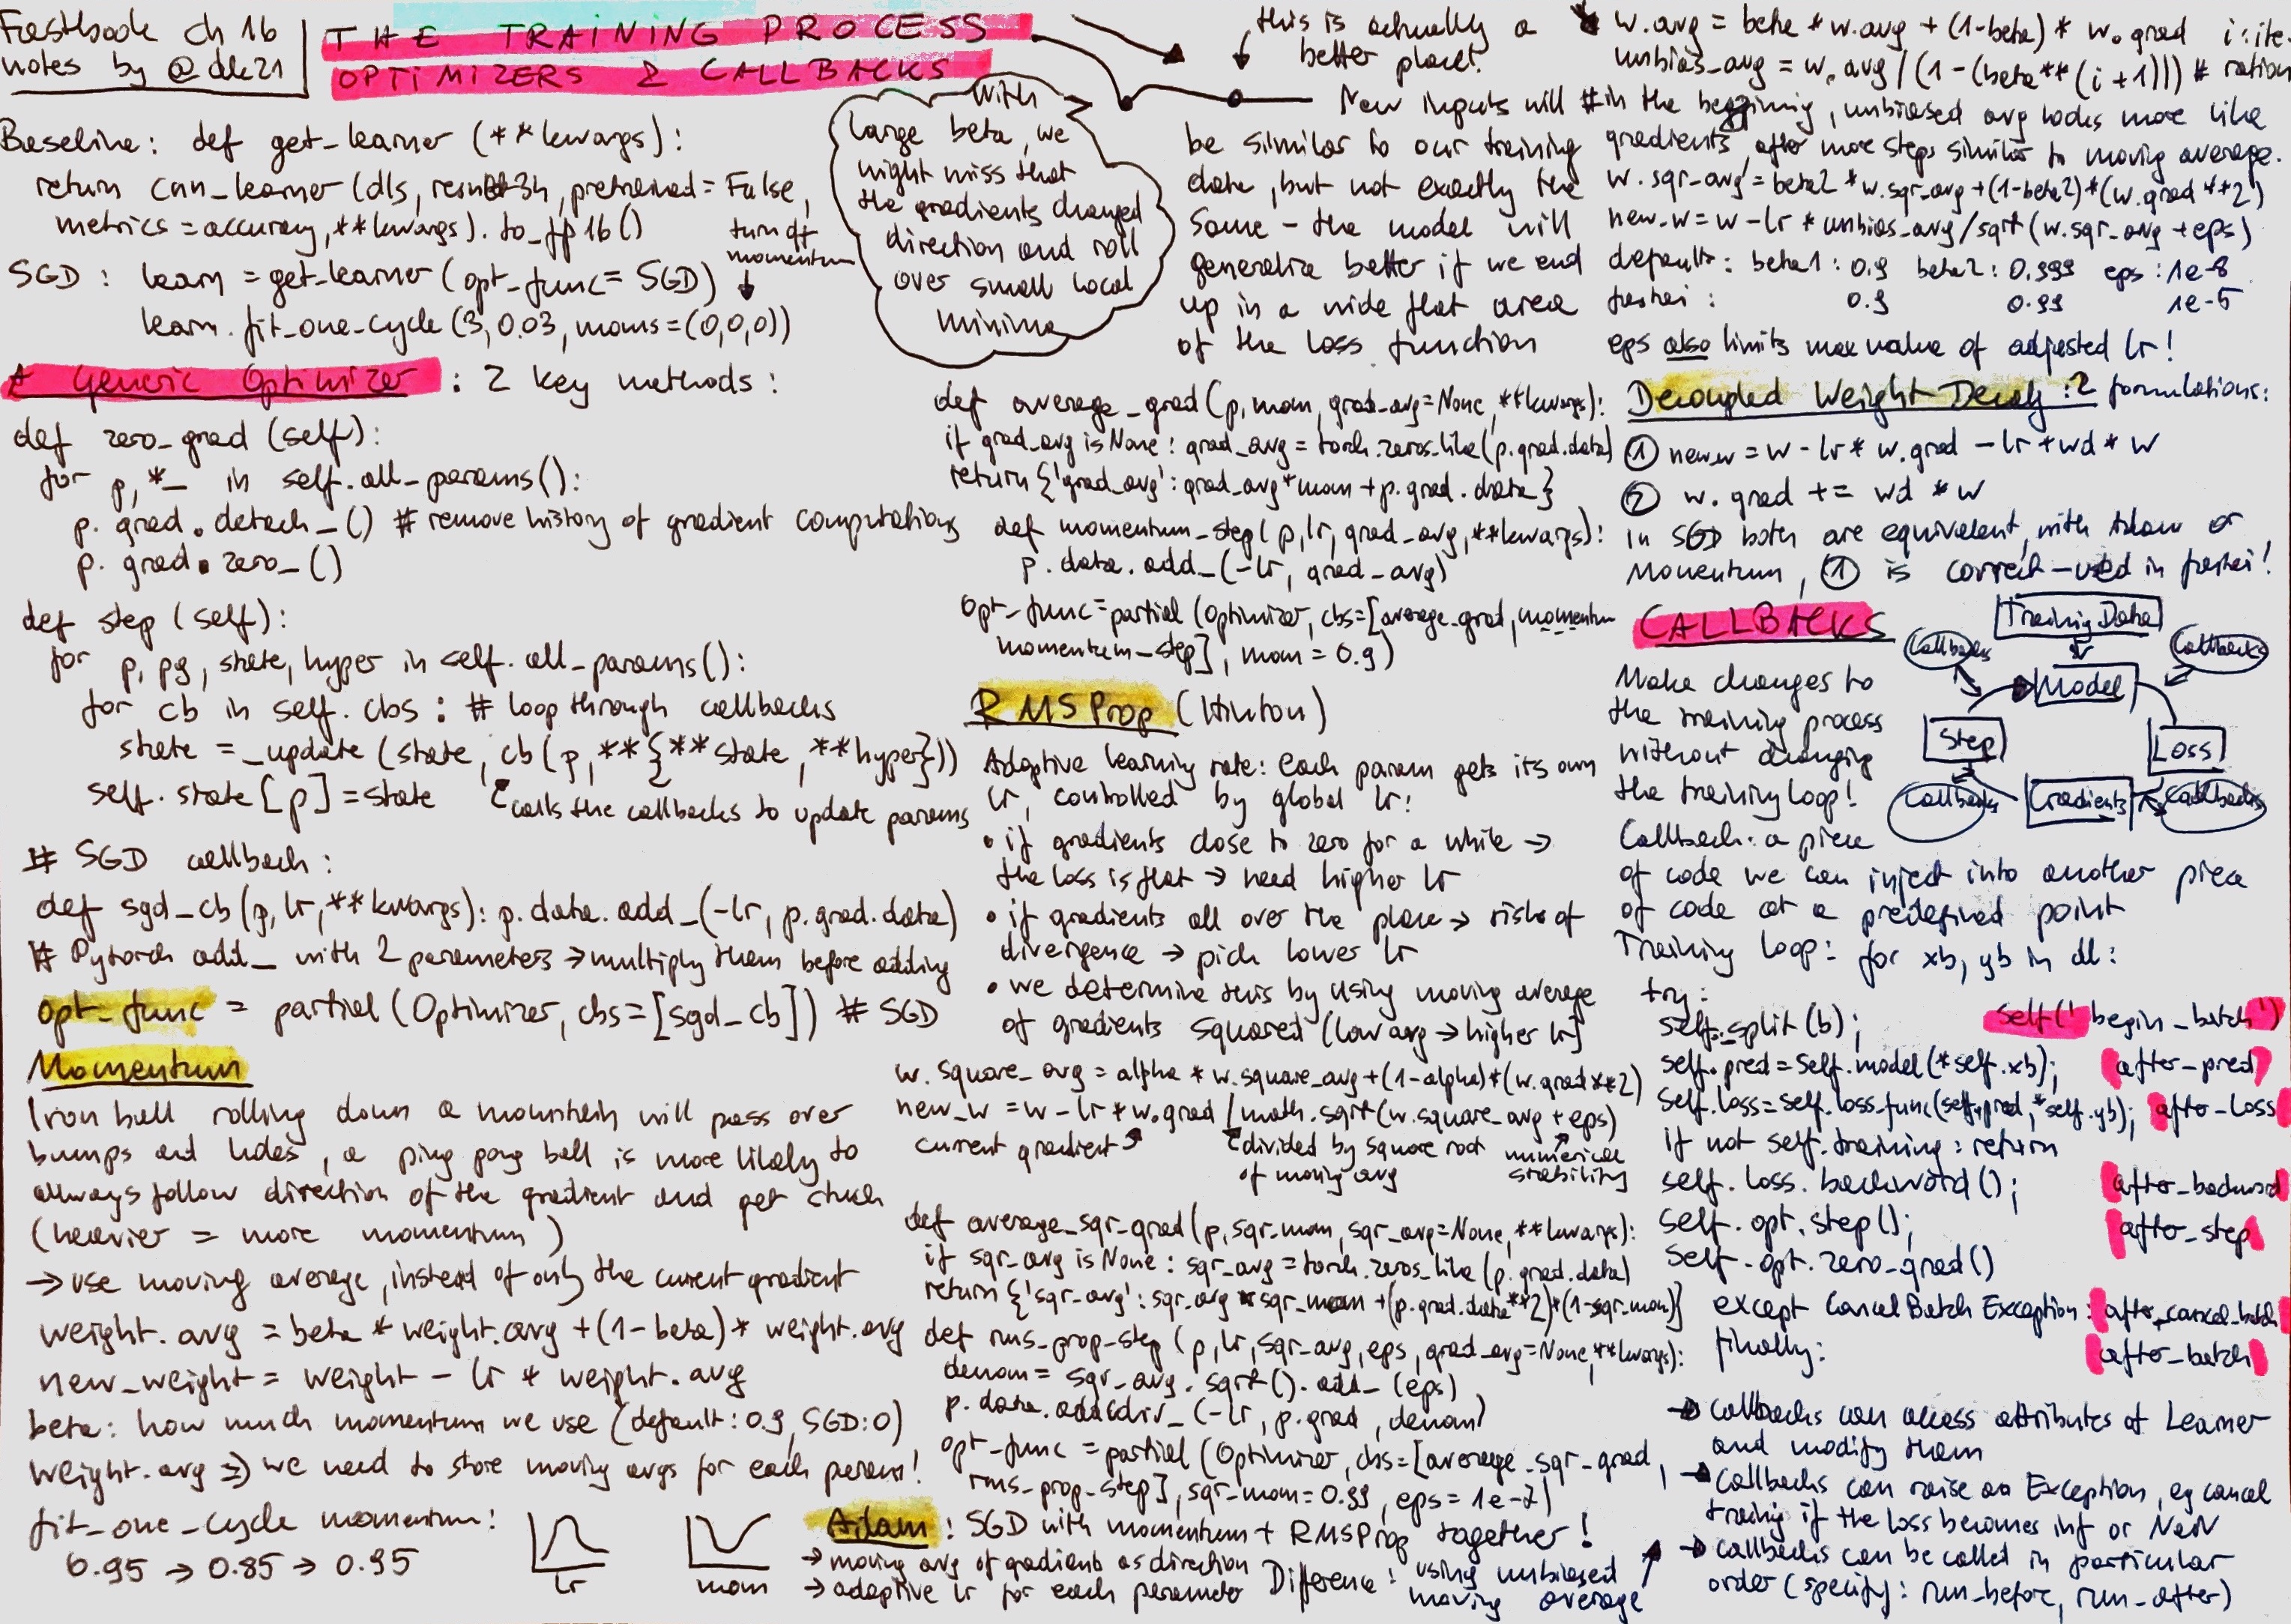 Fastbook ch 16
notes by @dk21
THE TRAINING PROCESS
OPTIMIZERS & CALLBACKS
Baseline: def get_learner (**kwargs):
return cnn_learner (dls, resnet34, pretrained = False,
metrics = accuracy, **kwargs). to_fp16()
turn off
momentum
SGD : learn = get_learner (opt_func = SGD)
learn. fit_one_cycle (3, 0.03, moms = (0,0,0))
A Generic Optimizer : 2 key methods :
def zero_grad (self):
for p,*_ in self.all_params():
p. grad. detach_() # remove history of gradient computations
p. grad. zero_()
def step (self):
for p, pg, state, hyper in self. all_params():
for cb in self. cbs : # loop through callbacks
state = _update (state, cb (p, **{**state, **hyper}))
self. state [p] = state
calls the callbacks to update params
# SGD callback :
def sgd_cb (p, lr, **kwargs): p. data. add_ (-lr, p. grad. data)
# Pytorch add_ with 2 parameters → multiply them before adding
opt_func = partial (Optimizer, cbs = [sgd_cb]) # SGD
Momentum
Iron ball rolling down a mountain will pass over
bumps and holes, a ping pong ball is more likely to
always follow direction of the gradient and get stuck
(heavier = more momentum)
→ use moving average, instead of only the current gradient
weight. avg = beta * weight. avg + (1-beta) * weight. avg
new_weight = weight - lr * weight. avg
beta: how much momentum we use (default: 0.9, SGD: 0)
weight. avg => we need to store moving avgs for each param!
fit_one_cycle momentum:
0.95 → 0.85 → 0.95
lr
mom
With
large beta, we
might miss that
the gradients changed
direction and roll
over small local
minima
this is actually a
better place!
New inputs will
be similar to our training
data, but not exactly the
same - the model will
generalize better if we end
up in a wide flat area
of the loss function
def average_grad (p, mom, grad_avg=None, **kwargs):
if grad_avg is None: grad_avg = torch. zeros_like (p. grad. data)
return {'grad_avg': grad_avg * mom + p. grad. data}
def momentum_step (p, lr, grad_avg, **kwargs):
p. data. add_ (-lr, grad_avg)
opt_func = partial (Optimizer, cbs = [average_grad, momentum
momentum_step], mom = 0.9)
RMSProp (Hinton)
Adaptive learning rate: each param gets its own
lr, controlled by global lr:
• if gradients close to zero for a while →
the loss is flat → need higher lr
• if gradients all over the place → risk of
divergence → pick lower lr
• we determine this by using moving average
of gradients squared (low avg → higher lr]
w. square_avg = alpha * w. square_avg + (1-alpha) * (w. grad ** 2)
new_w = w - lr * w. grad / math. sqrt (w. square_avg + eps)
current gradient
divided by square root
of moving avg
numerical
stability
def average_sqr_grad (p, sqr_mom, sqr_avg=None, **kwargs):
if sqr_avg is None: sqr_avg = torch. zeros_like (p. grad. data)
return {'sqr_avg': sqr_avg * sqr_mom + (p. grad. data ** 2) * (1-sqr_mom)}
def rms_prop_step (p, lr, sqr_avg, eps, grad_avg=None, **kwargs):
denom = sqr_avg. sqrt(). add_ (eps)
p. data. addcdiv_ (-lr, p. grad, denom)
opt_func = partial (Optimizer, cbs = [average_sqr_grad,
rms_prop_step], sqr_mom = 0.99, eps = 1e-7)
Adam : SGD with momentum + RMSProp together!
→ moving avg of gradients as direction
→ adaptive lr for each parameter
Difference : using unbiased
moving average
w. avg = beta * w. avg + (1-beta) * w. grad i: ite-
unbias_avg = w. avg / (1 - (beta ** (i+1))) # ration
# in the beginning, unbiased avg looks more like
gradients, after more steps similar to moving average.
w. sqr_avg = beta2 * w. sqr_avg + (1-beta2) * (w. grad ** 2)
new_w = w - lr * unbias_avg / sqrt (w. sqr_avg + eps)
default: beta1: 0.9 beta2: 0.999 eps: 1e-8
fastai : 0.9 0.99 1e-5
eps also limits max value of adjusted lr!
Decoupled Weight Decay : 2 formulations:
① new_w = w - lr * w. grad - lr * wd * w
② w. grad += wd * w
in SGD both are equivalent, with Adam or
Momentum, ① is correct - used in fastai!
CALLBACKS
Make changes to
the training process
without changing
the training loop!
Training Data
Callbacks
Callbacks
Model
Step
Loss
Callbacks
Gradients
Callbacks
Callback: a piece
of code we can inject into another piece
of code at a predefined point
Training loop: for xb, yb in dl:
try:
self. split (b); self('begin_batch')
self. pred = self. model (*self. xb); after_pred
self. loss = self. loss_func (self. pred, *self. yb); after_loss
if not self. training: return
self. loss. backward(); after_backward
self. opt. step(); after_step
self. opt. zero_grad()
except CancelBatchException: after_cancel_batch
finally: after_batch
→ callbacks can access attributes of Learner
and modify them
→ callbacks can raise an Exception, eg cancel
training if the loss becomes inf or NaN
→ callbacks can be called in particular
order (specify: run_before, run_after)